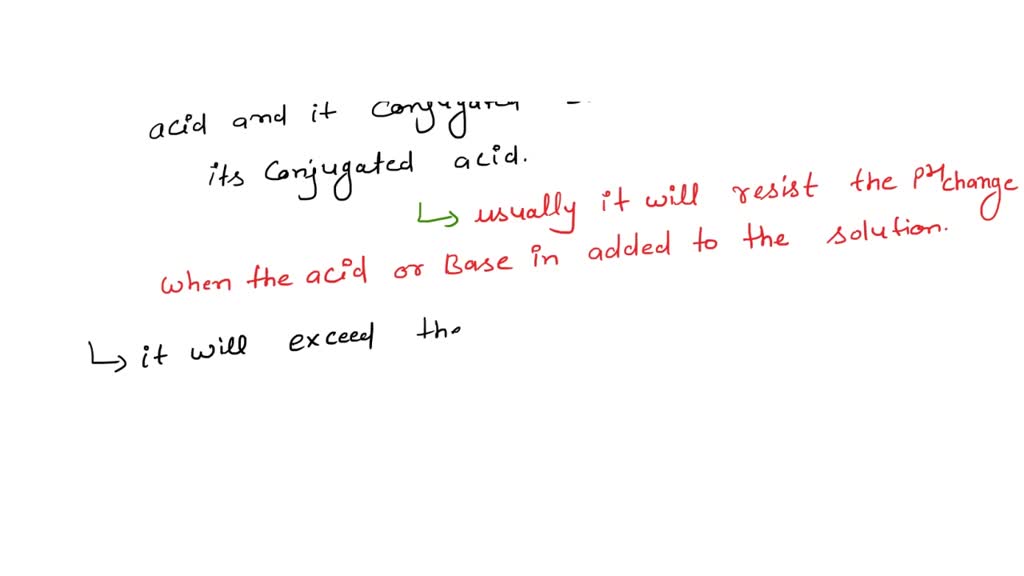 acid and it conjugated
its conjugated acid.
↳ usually it will resist the pH change
when the acid or Base in added to the solution.
↳ it will exceed the